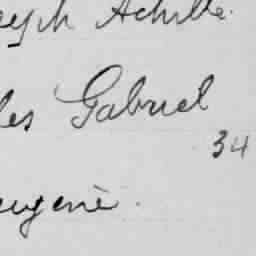 eph Achille.
les Gabriel
34
eugenie.